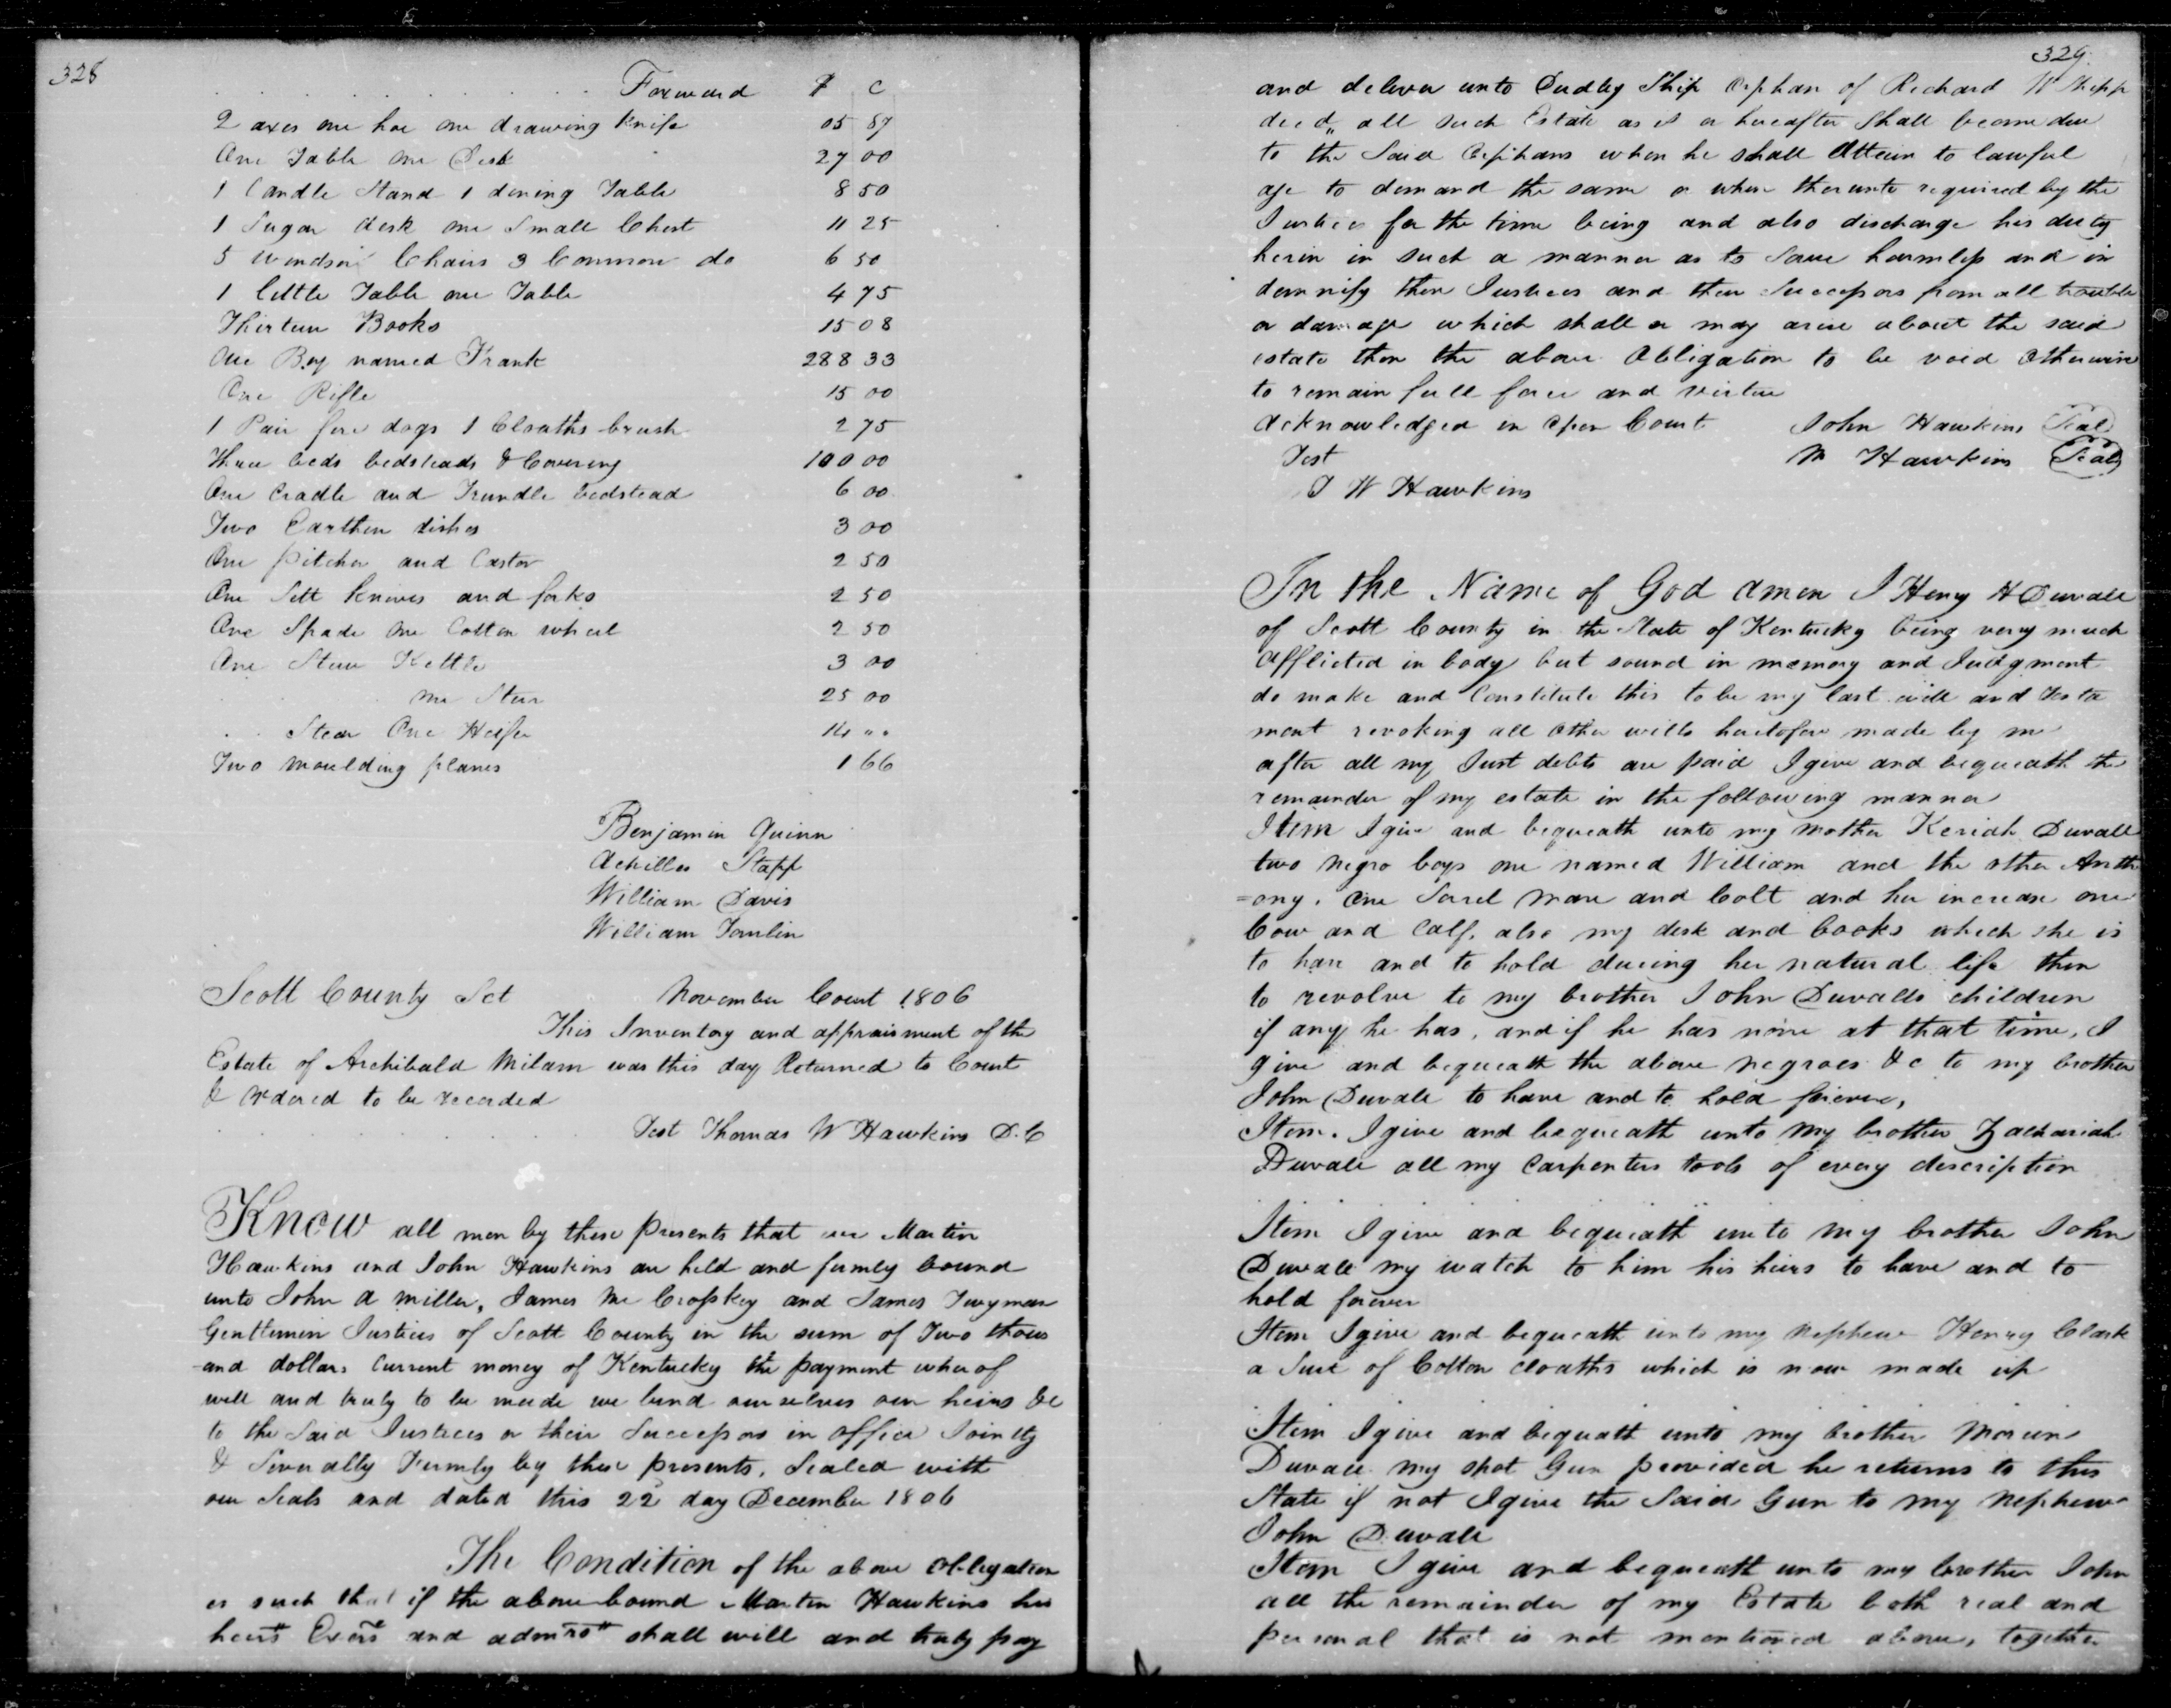 328
Forward $ C
2 axes one hoe one drawing knife 05 87
One Table One Desk 27 00
1 Candle Stand 1 dining Table 8 50
1 Sugar desk one Small Chest 11 25
5 Windsor Chairs 3 Common do 6 50
1 little Table one Table 4 75
Thirteen Books 15 08
One Boy named Frank 288 33
One Rifle 15 00
1 Pair fire dogs 1 Cloaths brush 2 75
Three beds bedsteads & Covering 100 00
One Cradle and Trundle bedstead 6 00
Two Earthen dishes 3 00
One pitcher and Castor 2 50
One Sett knives and forks 2 50
One Spade One Cotton wheel 2 50
One Stew Kettle 3 00
one Steer 25 00
Steer One Heifer 14 " "
Two moulding planes 1 66
Benjamin Quinn
Achilles Stapp
William Davis
William Tomlin
Scott County Sct November Court 1806
This Inventory and appraisment of the
Estate of Archibald Milam was this day Returned to Court
& ordered to be recorded
Test Thomas W Hawkins D.C
Know all men by these presents that we Martin
Hawkins and John Hawkins are held and firmly bound
unto John A Miller, James Mc Croſskey and James Twyman
Gentlemen Justices of Scott County in the sum of Two thous
-and dollars Current money of Kentucky the payment wherof
well and truly to be made we bind ourselves our heirs &c
to the Said Justices or their Succeſsors in office Jointly
& Severally Firmly by these presents, Sealed with
our Seals and dated this 22d day December 1806
The Condition of the above obligation
is such that if the above bound Martin Hawkins his
heirs Exers and admrs shall will and truly pay
329
and deliver unto Dudley Ship Orphan of Richard W Shipp
decd,, all such Estate as is or hereafter Shall become due
to the Said Orphans when he shall Attain to lawful
age to demand the same or when therunto required by the
Justices for the time being and also discharge his duty
herin in such a manner as to Save harmleſs and in
demnify then Justices and their Succeſsors from all trouble
or damage which shall or may arise about the said
estate then the above Obligation to be void Otherwise
to remain full force and virtue
Acknowledged in Open Court John Hawkins Seal
Test M Hawkins Seal
T W Hawkins
In the Name of God amen I Henry H Duvall
of Scott County in the State of Kentucky being very much
afflicted in body but sound in memory and Judgment
do make and Constitute this to be my last will and testa
ment revoking all other wills heretofore made by me
after all my Just debts are paid I give and bequeath the
remainder of my estate in the following manner
Item I give and bequeath unto my mother Keriah Duvall
two negro boys one named William and the other Anth
=ony. One Sorrel mare and Colt and her increase one
Cow and Calf, also my desk and books which she is
to have and to hold during her natural life then
to revolve to my brother John Duvalls children
if any he has, and if he has none at that time, I
give and bequeath the above negroes &c to my brother
John Duvall to have and to hold forever,
Item. I give and bequeath unto my brother Zachariah
Duvall all my Carpenters tools of every description
Item I give and bequeath unto my brother John
Duvall my watch to him his heirs to have and to
hold forever
Item I give and bequeath unto my nephew Henry Clark
a Suit of Cotton cloaths which is now made up
Item I give and bequeath unto my brother Mareen
Duvall my shot Gun provided he returns to this
State if not I give the Said Gun to my nephew
John Duvall
Item I give and bequeath unto my brother John
all the remainder of my Estate both real and
personal that is not mentioned above, together